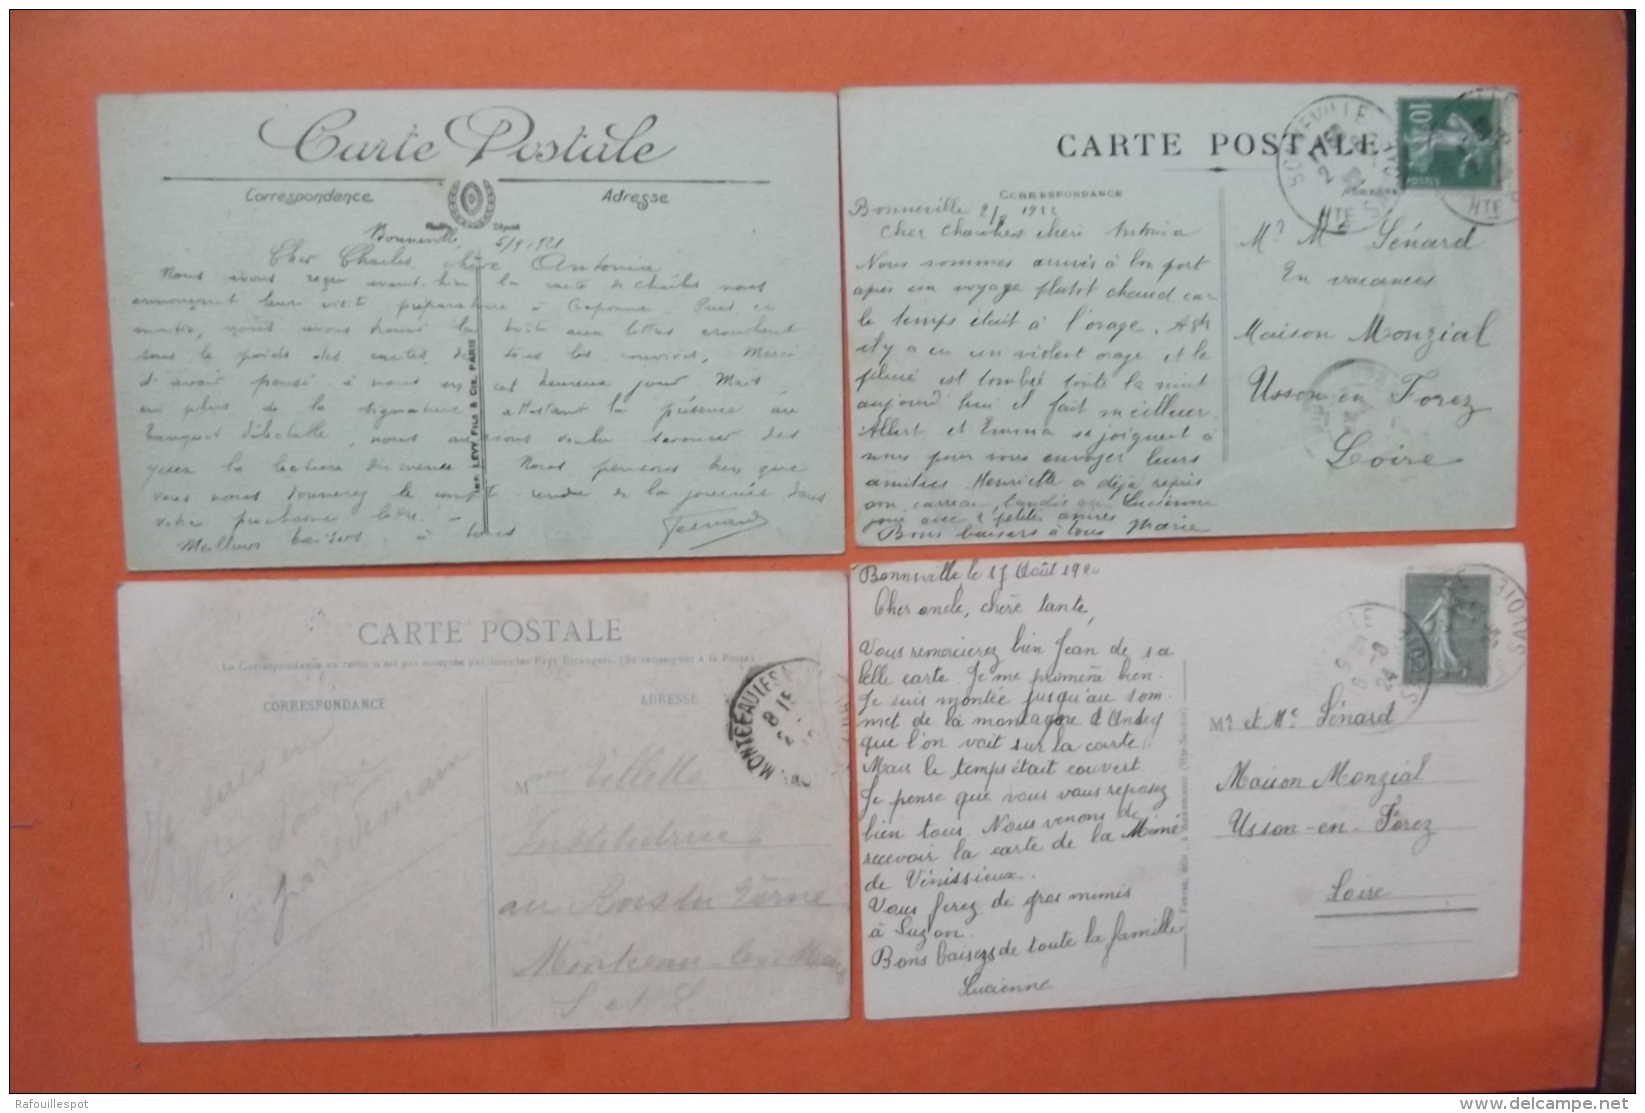 Carte Postale
Correspondance
Adresse
Bonneville, 5/9/1921
Cher Charles, chère Antonia
Nous avons reçu avant-hier la carte de Charles nous
annonçant leur visite préparatoire à Craponne. Puis, ce
matin, nous avons trouvé la boîte aux lettres croulant
sous le poids des cartes de tous les convives. Merci
d'avoir pensé à nous en cet heureux jour. Mais
en plus de la signature attestant la présence au
banquet délectable, nous aurions voulu savourer des
yeux la lecture du menu. Nous pensons bien que
vous nous donnerez le compte-rendu de la journée dans
votre prochaine lettre.
Meilleurs baisers à tous
Fernand
IMP. LEVY FILS & CIE, PARIS
CARTE POSTALE
CORRESPONDANCE
ADRESSE
Bonneville 2/8 1922
Cher Charles chère Antonia
Nous sommes arrivés à bon port
après un voyage plutôt chaud car
le temps était à l'orage. A 9h
il y a eu un violent orage et la
pluie est tombée toute la nuit
aujourd'hui il fait meilleur.
Albert et Emma se joignent à
nous pour vous envoyer leurs
amitiés Henriette a déjà repris
son carreau, tandis que Lucienne
joue avec 2 petites amies
Bons baisers à tous Marie
10
POSTES
BONNEVILLE
HTE
Mr Me Sénard
En vacances
Maison Monzial
Usson en Forez
Loire
CARTE POSTALE
La Correspondance au recto n'est pas acceptée par tous les Pays Etrangers. (Se renseigner à la Poste)
CORRESPONDANCE
ADRESSE
Je suis en
Savoie
MONTCEAU LES M
8 15
Mme Villette
Institutrice
au Bois du Verne
Montceau-les-Mines
S et L
Bonneville le 15 Août 192
Cher oncle, chère tante,
Vous remercierez bien Jean de sa
belle carte. Je me promène bien.
Je suis montée jusqu'au som-
met de la montagne d'Andey
que l'on voit sur la carte.
Mais le temps était couvert.
Je pense que vous vous reposez
bien tous. Nous venons de
recevoir la carte de la Mimé
de Vénissieux.
Vous ferez de gros mimis
à Suzon.
Bons baisers de toute la famille
Lucienne
SAVOIE
Mr et Me Sénard
Maison Monzial
Usson-en-Forez
Loire
Rafouillespot
delcampe.net